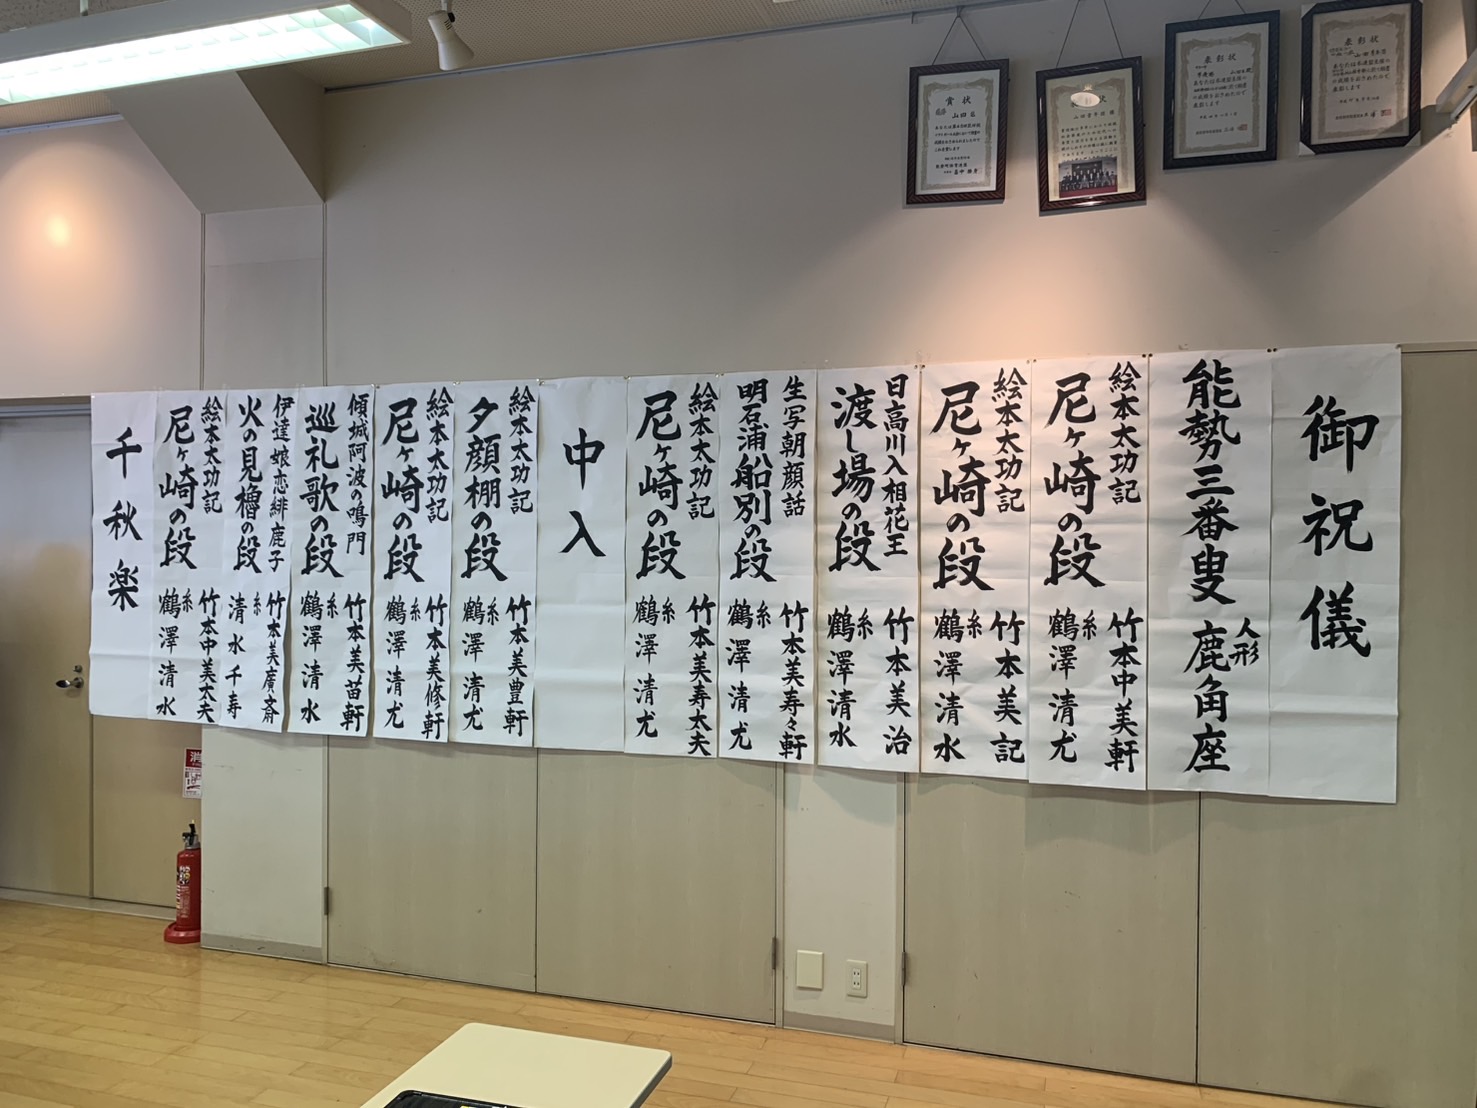 御祝儀
能勢三番叟 人形 鹿角座
絵本太功記
尼ヶ崎の段
竹本中美軒
糸 鶴澤清尤
絵本太功記
尼ヶ崎の段
竹本美記
糸 鶴澤清水
日高川入相花王
渡し場の段
竹本美治
糸 鶴澤清水
生写朝顔話
明石浦船別の段
竹本美寿々軒
糸 鶴澤清尤
絵本太功記
尼ヶ崎の段
竹本美寿太夫
糸 鶴澤清尤
中入
絵本太功記
夕顔棚の段
竹本美豊軒
糸 鶴澤清尤
絵本太功記
尼ヶ崎の段
竹本美修軒
糸 鶴澤清尤
傾城阿波の鳴門
巡礼歌の段
竹本美苗軒
糸 鶴澤清水
伊達娘恋緋鹿子
火の見櫓の段
竹本美廣斎
糸 清水千寿
絵本太功記
尼ヶ崎の段
竹本中美太夫
糸 鶴澤清水
千秋楽
賞状
表彰状
表彰状
消